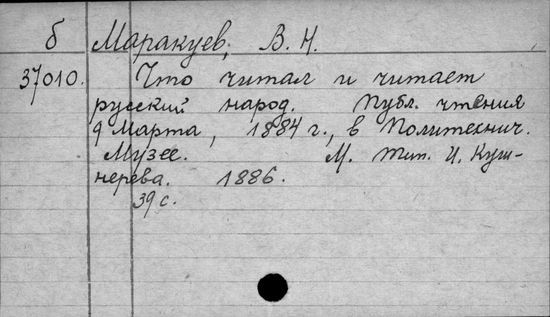 б Маракуев, В. Н.
37010. Что читал и читает
русский народ. Публ. чтения
9 Марта, 1884 г., в Политехнич.
Музее. М. тип. И. Куш-
нерева. 1886.
39 с.